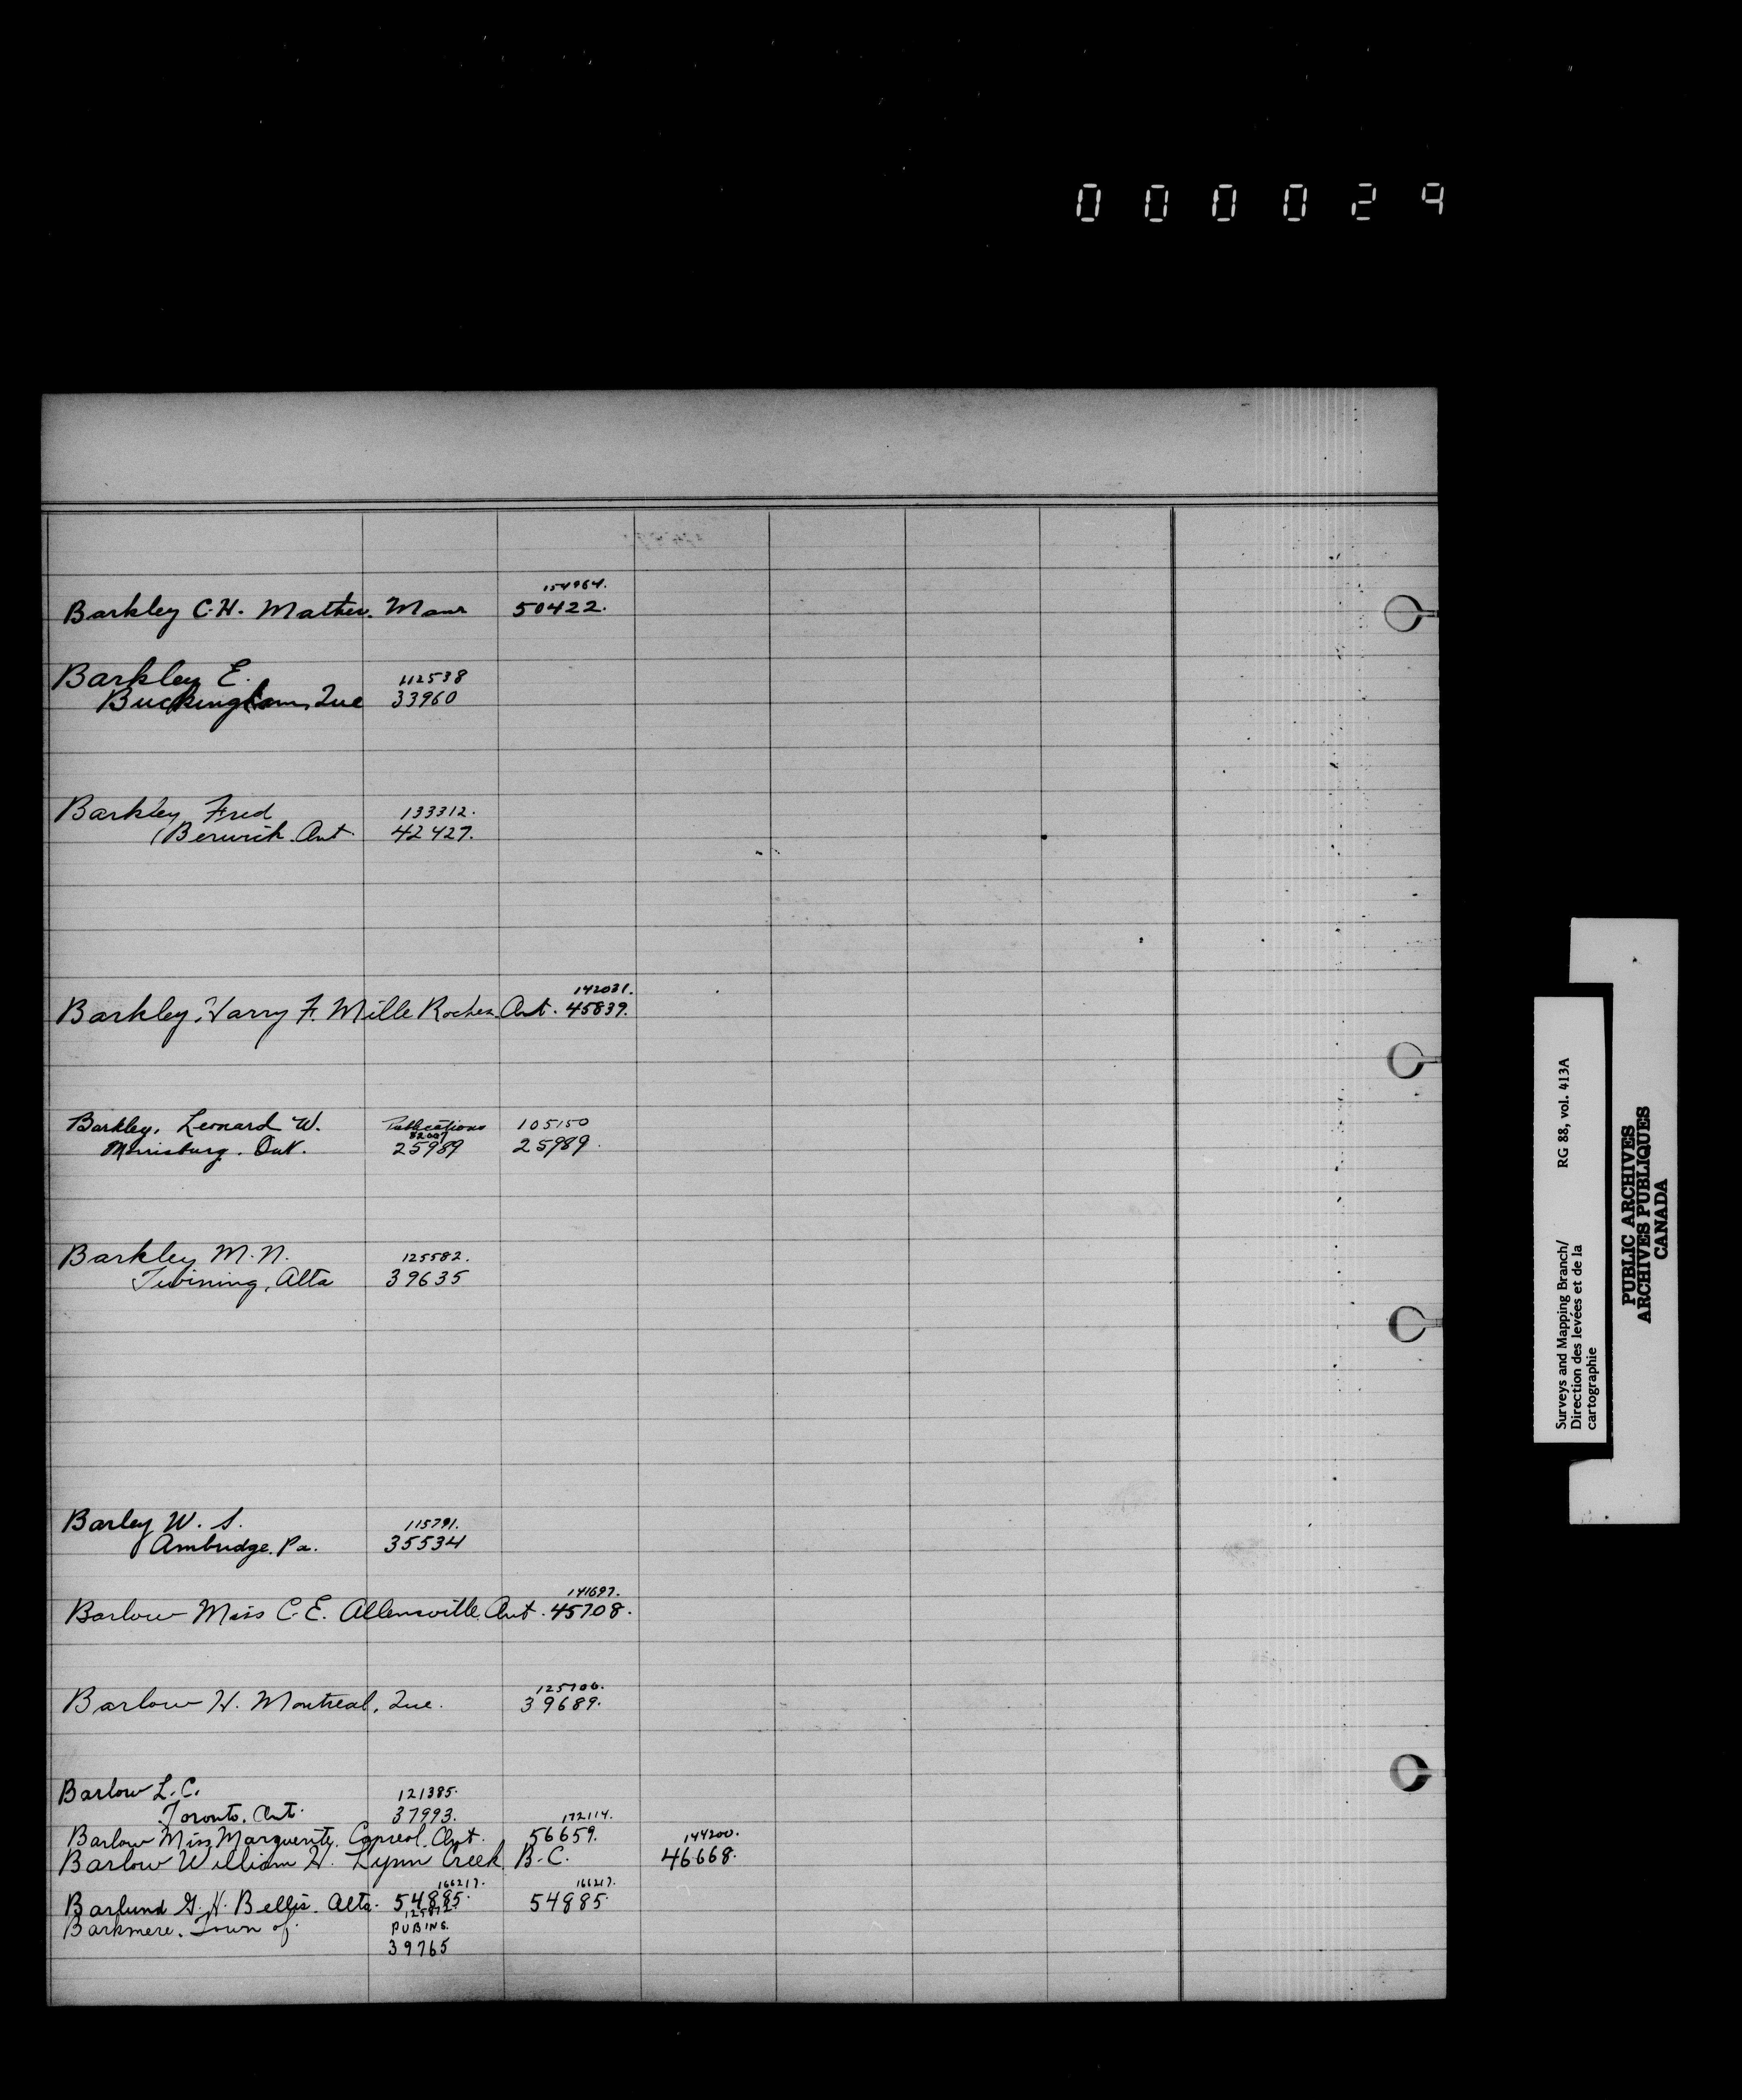 000029
154964.
Barkley C.H. Mather. Man 50422.
Barkley E. 112538
Buckingham, Que 33960
Barkley Fred 133312.
Berwick. Ont. 42427.
142031.
Barkley, Harry F. Mille Roches. Ont. 45839.
Barkley, Leonard W. Publications 105150
82007
Morrisburg. Ont. 25989 25989.
Barkley M.N. 125582.
Twining, Alta 39635
Barley W. S. 115791.
Ambridge. Pa. 35534
141697.
Barlow Miss C.E. Allensville, Ont. 45708.
125706.
Barlow H. Montreal, Que. 39689.
Barlow L.C. 121385.
Toronto. Ont. 37993. 172114.
Barlow Miss Marguerite. Capreol. Ont. 56659. 144200.
Barlow William H. Lynn Creek B.C. 46668.
166217. 166217.
Barlund G.H. Bellis. Alta. 54885. 54985
Barkmere. Town of.
PUBING.
39765
Surveys and Mapping Branch/ RG 88, vol. 413A
Direction des levées et de la
cartographie
PUBLIC ARCHIVES
ARCHIVES PUBLIQUES
CANADA